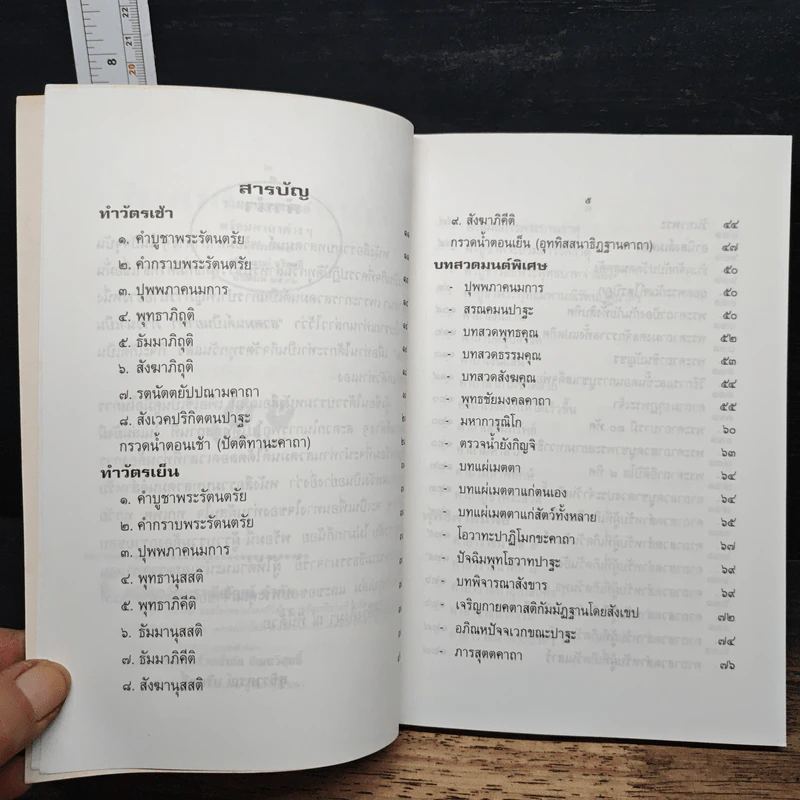 สารบัญ
ทำวัตรเช้า
๑. คำบูชาพระรัตนตรัย
๒. คำกราบพระรัตนตรัย
๓. ปุพพภาคนมการ
๔. พุทธาภิถุติ
๕. ธัมมาภิถุติ
๖. สังฆาภิถุติ
๗. รตนัตตยัปปณามคาถา
๘. สังเวคปริกิตตนปาฐะ
กรวดน้ำตอนเช้า (ปัตติทานะคาถา)
ทำวัตรเย็น
๑. คำบูชาพระรัตนตรัย
๒. คำกราบพระรัตนตรัย
๓. ปุพพภาคนมการ
๔. พุทธานุสสติ
๕. พุทธาภิคีติ
๖. ธัมมานุสสติ
๗. ธัมมาภิคีติ
๘. สังฆานุสสติ
๕
๙. สังฆาภิคีติ ๔๔
กรวดน้ำตอนเย็น (อุททิสสนาธิฏฐานคาถา) ๔๗
บทสวดมนต์พิเศษ ๕๐
- ปุพพภาคนมการ ๕๐
- สรณคมนปาฐะ ๕๐
- บทสวดพุทธคุณ ๕๒
- บทสวดธรรมคุณ ๕๓
- บทสวดสังฆคุณ ๕๔
- พุทธชัยมงคลคาถา ๕๕
- มหาการุณิโก ๖๐
- ตรวจน้ำยังกิญจิ ๖๓
- บทแผ่เมตตา ๖๔
- บทแผ่เมตตาแก่ตนเอง ๖๔
- บทแผ่เมตตาแก่สัตว์ทั้งหลาย ๖๕
- โอวาทะปาฏิโมกขะคาถา ๖๗
- ปัจฉิมพุทโธวาทปาฐะ ๖๙
- บทพิจารณาสังขาร ๖๙
- เจริญกายคตาสติกัมมัฏฐานโดยสังเขป ๗๒
- อภิณหปัจจเวกขณะปาฐะ ๗๔
- ภารสุตตคาถา ๗๖
8
20
21
22